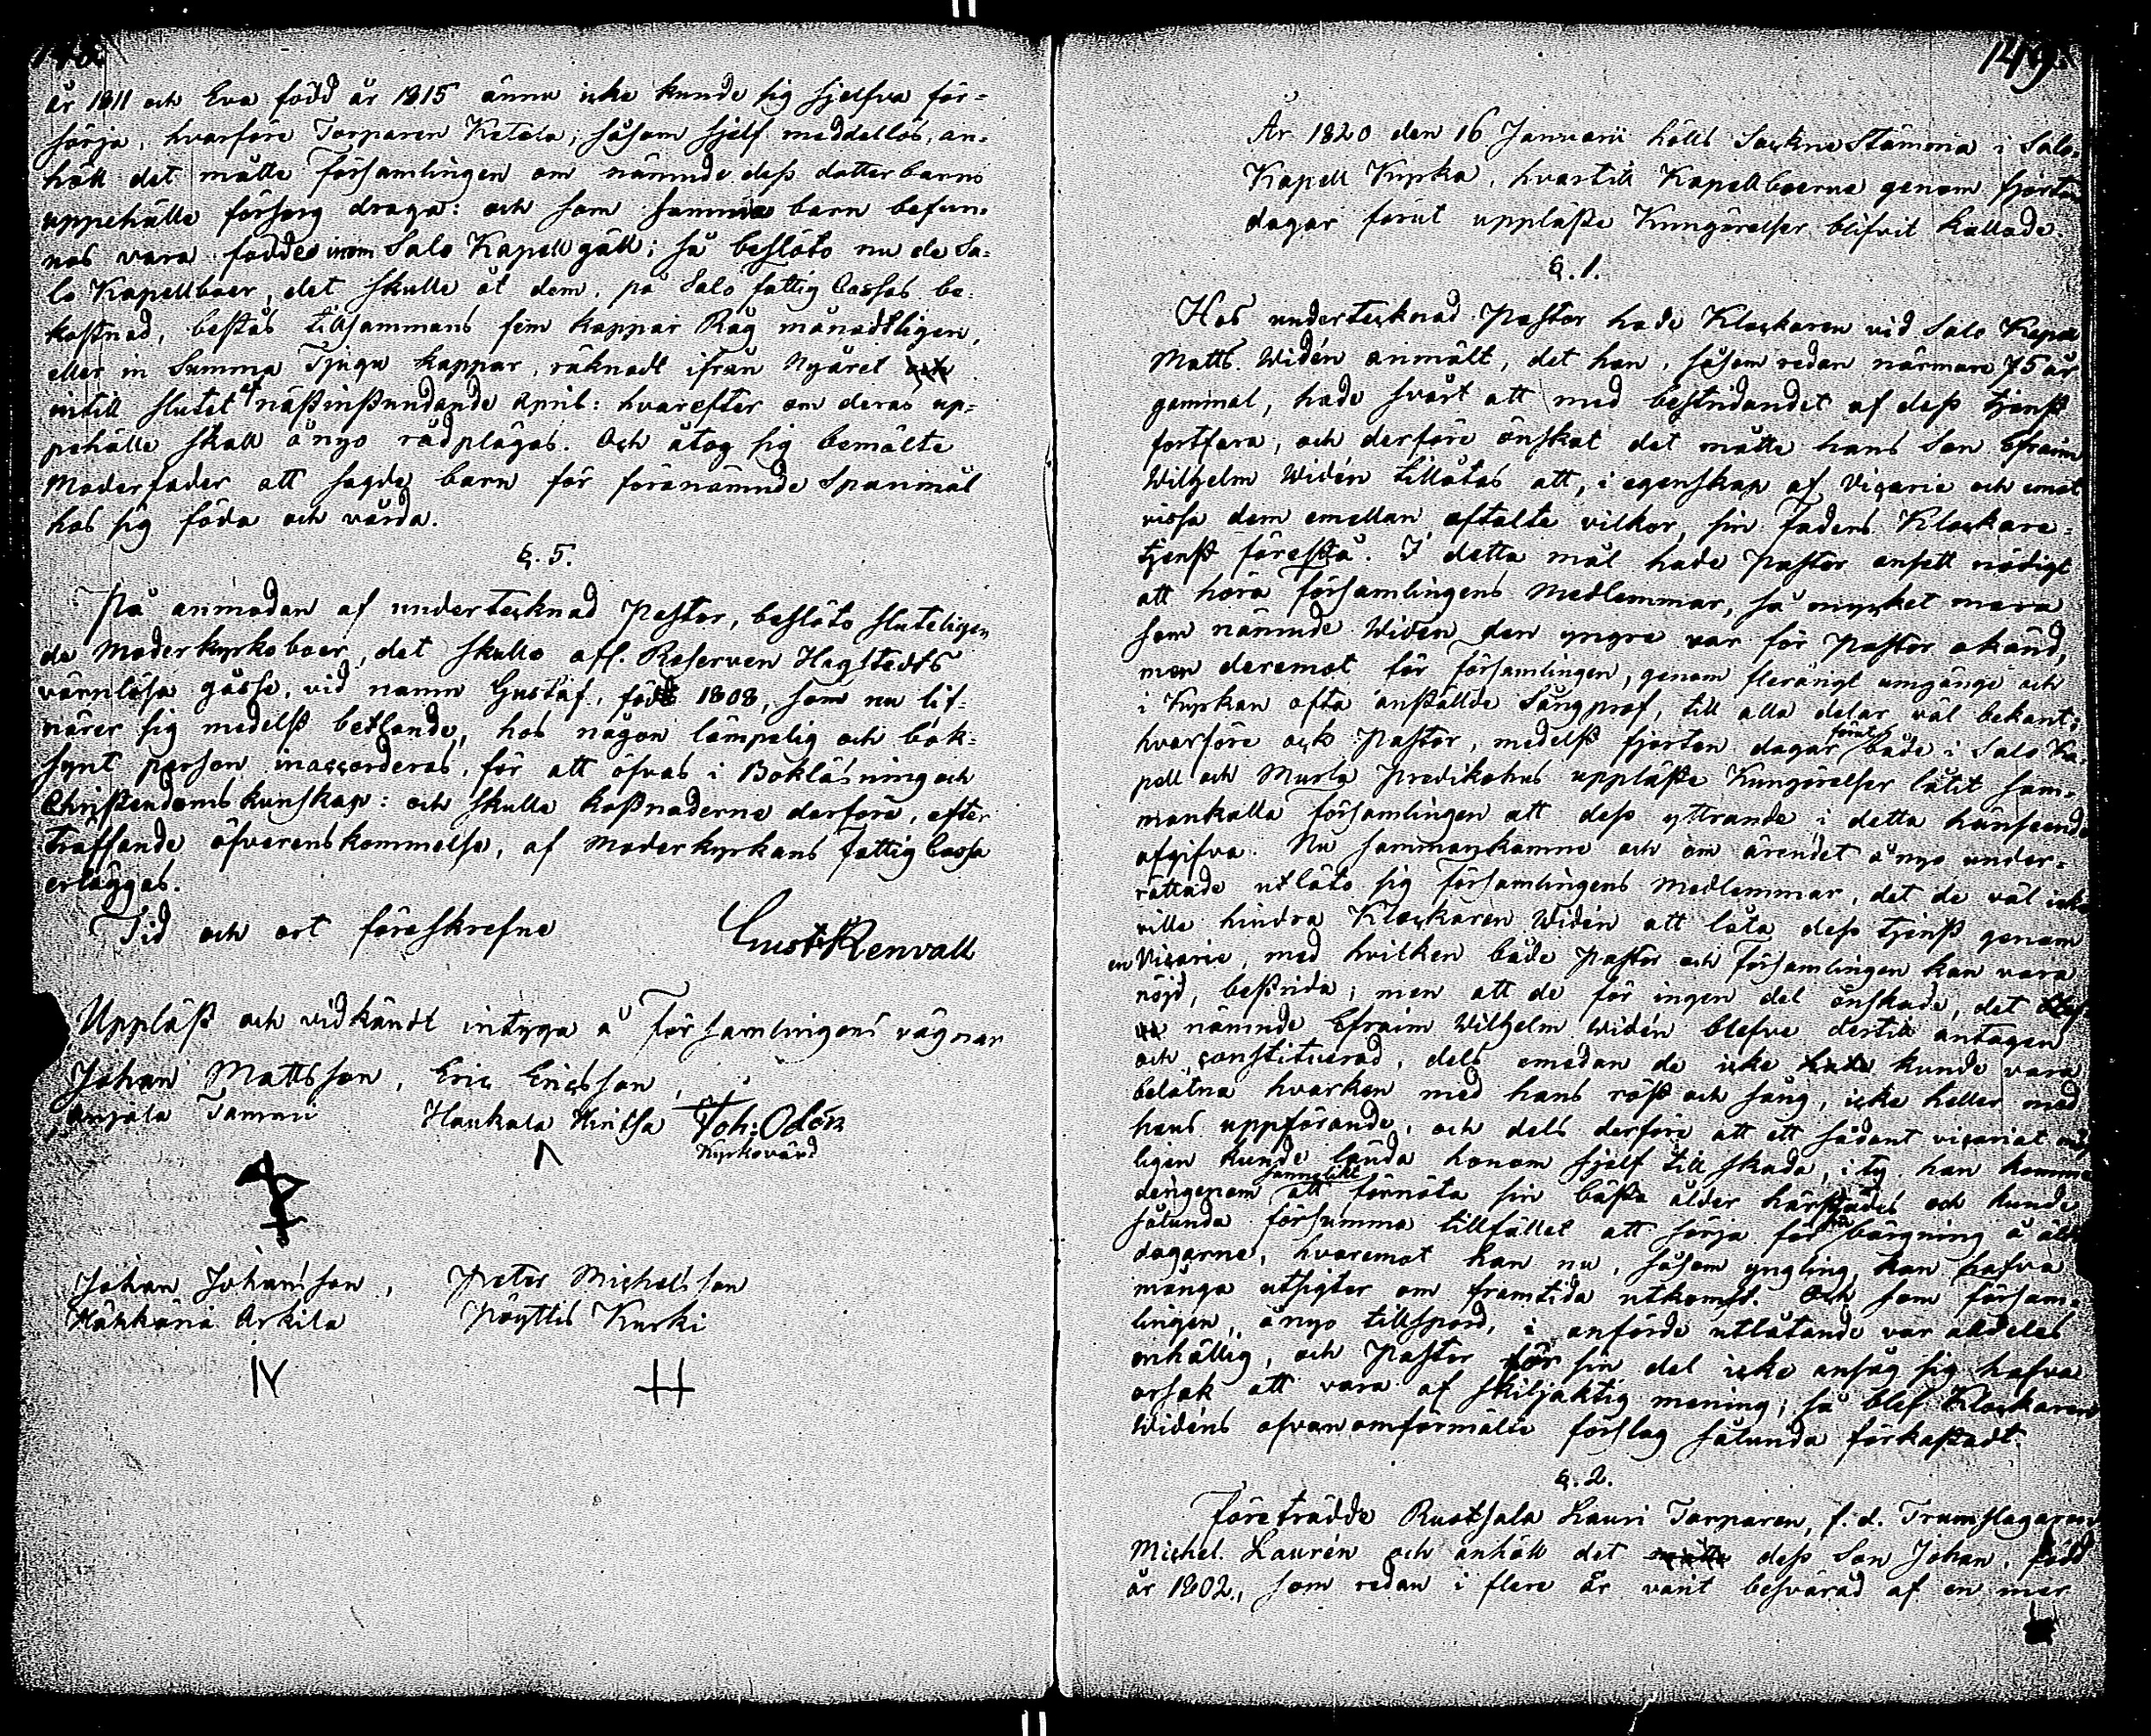 148
år 1811 och Eva född år 1815 ännu icke kunde sig sjelfva för=
sörja, hvarföre Torparen Ketola, såsom sjelf meddellös, an=
höll det måtte Församlingen om nämnde dess dotter barns
uppehälle försorg draga: och som samma barn befun=
nos vara födde inom Salo Kapell gäll; så beslöto nu de Sa=
lo Kapellboer, det skulle åt dem, på Salo fattig Cassas be=
kostnad, bestås tillsammans fem kappar Råg månadtligen,
eller in Summa Tjugu kappar, räknadt ifrån Nyåret
intill slutet af nästinstundande April: hvarefter om deras up=
pehälle skall å nyo rådplägas. Och åtog sig bemälte
Moderfader att sagde barn för förenämnde Spanmål
hos sig föda och vårda.
§. 5.
På anmodan af undertecknad Pastor, beslöto sluteligen
de Moderkyrkoboer, det skulle afl. Reserven Hagstedts
värnlösa gosse, vid namn Gustaf, född 1808, som nu lif=
närer sig medelst betlande, hos någon lämpelig och bok=
synt person inaccorderas, för att öfvas i Bokläsning och
Christendoms kunskap: och skulle kostnaderne derföre, efter
träffande öfverenskommelse, af Moderkyrkans Fattig Cassa
erläggas.
Tid och ort föreskrefne
Gust: Renvall
Uppläst och vidkändt intyga å Församlingens vägnar
Johan Mattsson, Eric Ericsson,
Anjala Tammi Haukala Hintsa Joh: Odén
Kyrkovärd
Johan Johansson, Peter Michelsson
Härkänä Arkila Pöyttis Kurki
IV
149
År 1820 den 16 Januarii hölls SocknеStämma i Salo
Kapell Kyrka, hvartill Kapellboerne genom fjorton
dagar förut uppläste Kungörelser blifvit kallade.
§. 1.
Hos undertecknad Pastor hade Klockaren vid Salo Kapell
Matts. Widén anmält, det han, såsom redan närmare 75 år
gammal, hade svårt att med bestridandet af dess tjenst
fortfara, och derföre önskat det måtte hans Son Efraim
Wilhelm Widén tillåtas att, i egenskap af Vicarie och emot
vissa dem emellan aftalte vilkor, sin Faders Klockare=
tjenst förestå. I detta mål hade Pastor ansett nödigt
att höra Församlingens Medlemmar, så mycket mera
som nämnde Widén den yngre var för Pastor okänd,
men deremot för församlingen, genom flerårigt umgänge och
i Kyrkan ofta anställde Sångprof, till alla delar väl bekant;
hvarföre ock Pastor, medelst fjorton dagar förut både i Salo Ka=
pell och Murla Predikohus uppläste Kungörelser låtit sam=
mankalla församlingen att dess yttrande i detta hänseende
afgifva. Nu sammankomne och om ärendet å nyo under=
rättade utläto sig Församlingens Medlemmar, det de väl icke
ville hindra Klockaren Widén att låta dess tjenst genom
en Vicarie, med hvilken både Pastor och Församlingen kan vara
nöjd, bestrida; men att de för ingen del önskade, det
nämnde Efraim Wilhelm Widén blefve dertill antagen
och constituerad, dels emedan de icke kunde vara
belåtna hvarken med hans röst och sång, icke heller med
hans uppförande, och dels derföre att ett sådant vicariat möj
ligen kunde lända honom sjelf till skada, i ty han komme
derigenom sannolikt att förnöta sin bästa ålder härstädes och kunde
sålunda försumma tillfället att sörja för sin bärgning å ålder
dagarne, hvaremot han nu, såsom yngling, kan hafva
många utsigter om framtida utkomst. Och som försam=
lingen, å nyo tillspord, i anförde utlåtande var alldeles
enhällig, och Pastor för sin del icke ansåg sig hafva
orsak att vara af skiljaktig mening; så blef Klockaren
Widéns ofvanomförmälte förslag sålunda förkastadt.
§. 2.
Företrädde Ruotsala Lauri Torparen, f. d. Trumslagaren
Michel Laurén och anhöll det dess Son Johan, född
år 1802, som redan i flere år varit besvärad af en mer